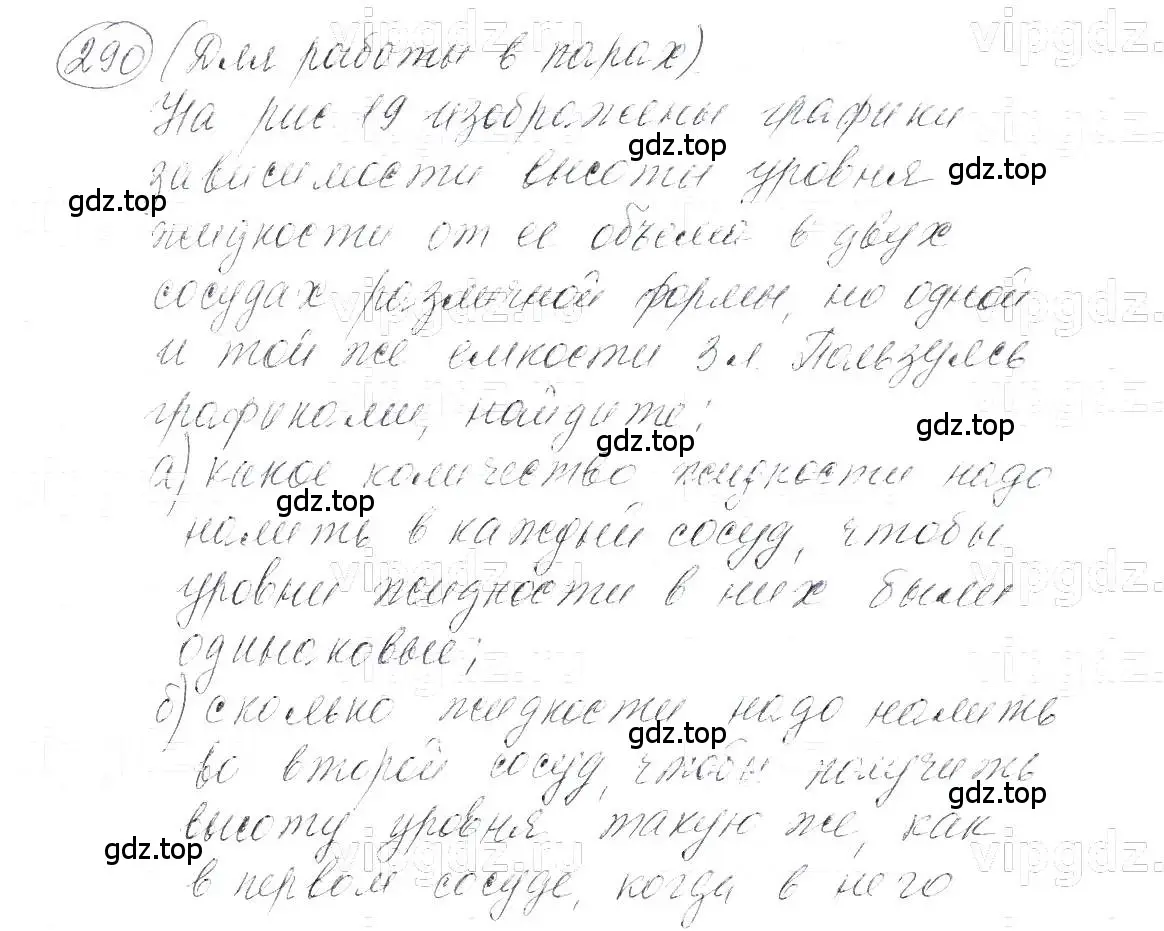 290 (Для работы в парах)
На рис. 19 изображены графики
зависимости высоты уровня
жидкости от ее объема в двух
сосудах различной формы, но одной
и той же емкости 3 л. Пользуясь
графиками, найдите:
а) какое количество жидкости надо
налить в каждый сосуд, чтобы
уровни жидкости в них были
одинаковые;
б) сколько жидкости надо налить
во второй сосуд, чтобы получить
высоту уровня такую же, как
в первом сосуде, когда в него
gdz.top
gdz.top
gdz.top
gdz.top
gdz.top
gdz.top
gdz.top
gdz.top
gdz.top
vipgdz.ru
vipgdz.
vipgdz.ru
vipgdz.
vipgdz.ru
vipgdz.
vipgdz.ru
vipgdz.